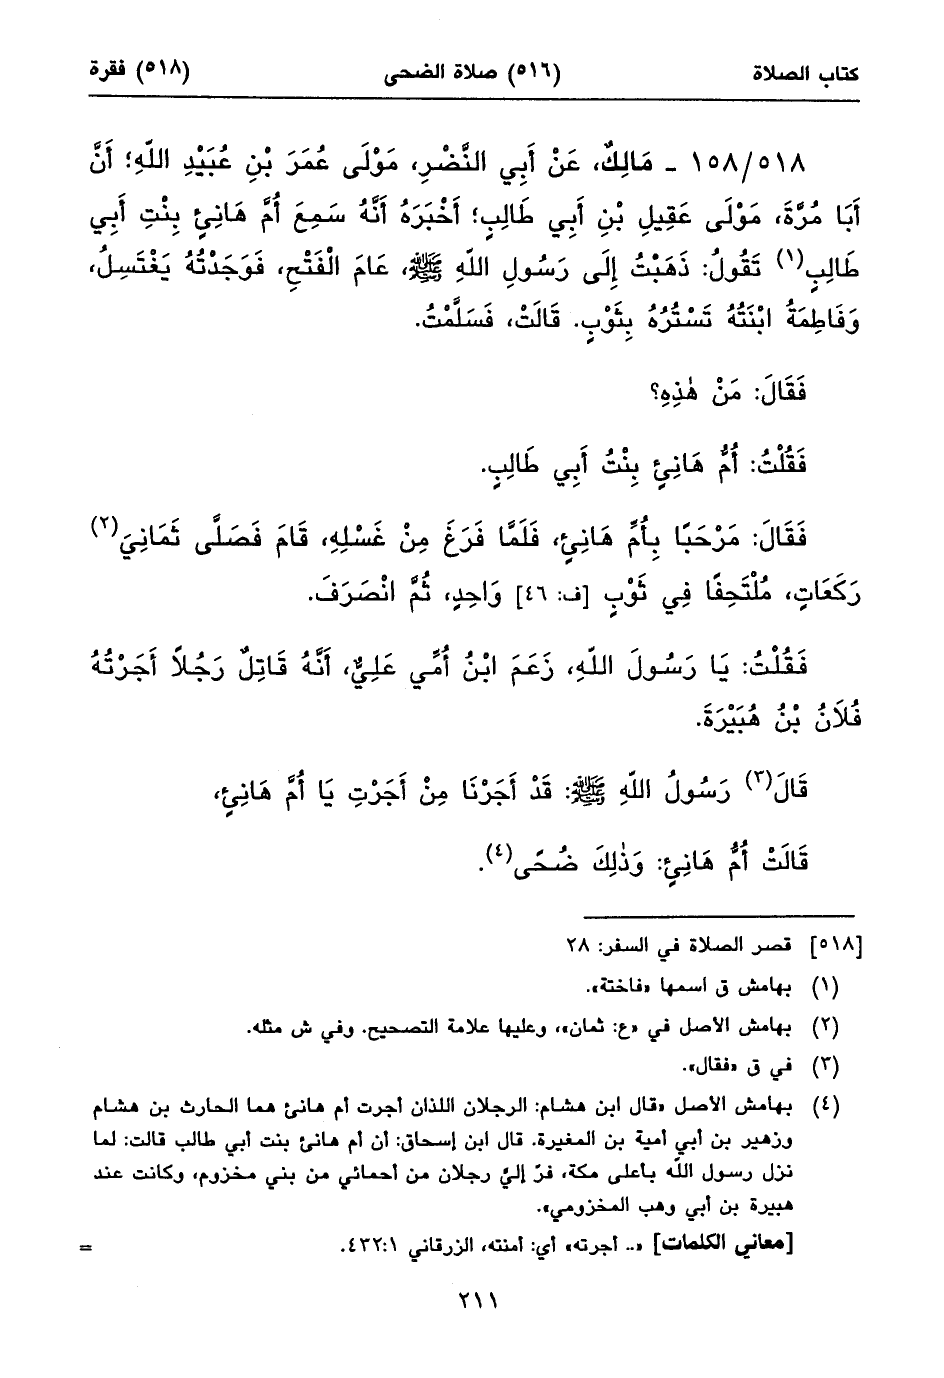 كتاب الصلاة (٥١٦) صلاة الضحى (٥١٨) فقرة
١٥٨/٥١٨ - مَالِكٌ، عَنْ أَبِي النَّضْرِ، مَوْلَى عُمَرَ بْنِ عُبَيْدِ اللّهِ؛ أَنَّ
أَبَا مُرَّةَ، مَوْلَى عَقِيلِ بْنِ أَبِي طَالِبٍ؛ أَخْبَرَهُ أَنَّهُ سَمِعَ أُمَّ هَانِئٍ بِنْتِ أَبِي
طَالِبٍ(١) تَقُولُ: ذَهَبْتُ إِلَى رَسُولِ اللّهِ ﷺ، عَامَ الْفَتْحِ، فَوَجَدْتُهُ يَغْتَسِلُ،
وَفَاطِمَةُ ابْنَتُهُ تَسْتُرُهُ بِثَوْبٍ. قَالَتْ، فَسَلَّمْتُ.
فَقَالَ: مَنْ هٰذِهِ؟
فَقُلْتُ: أُمُّ هَانِئٍ بِنْتُ أَبِي طَالِبٍ.
فَقَالَ: مَرْحَبًا بِأُمِّ هَانِئٍ، فَلَمَّا فَرَغَ مِنْ غَسْلِهِ، قَامَ فَصَلَّى ثَمَانِيَ(٢)
رَكَعَاتٍ، مُلْتَحِفًا فِي ثَوْبٍ [ف: ٤٦] وَاحِدٍ، ثُمَّ انْصَرَفَ.
فَقُلْتُ: يَا رَسُولَ اللّهِ، زَعَمَ ابْنُ أُمِّي عَلِيٌّ، أَنَّهُ قَاتِلٌ رَجُلاً أَجَرْتُهُ
فُلَانُ بْنُ هُبَيْرَةَ.
قَالَ(٣) رَسُولُ اللّهِ ﷺ: قَدْ أَجَرْنَا مِنْ أَجَرْتِ يَا أُمَّ هَانِئٍ،
قَالَتْ أُمُّ هَانِئٍ: وَذٰلِكَ ضُحًى(٤).
[٥١٨] قصر الصلاة في السفر: ٢٨
(١) بهامش ق اسمها «فاختة».
(٢) بهامش الأصل في «ع: ثمان»، وعليها علامة التصحيح. وفي ش مثله.
(٣) في ق «فقال».
(٤) بهامش الأصل «قال ابن هشام: الرجلان اللذان أجرت أم هانئ هما الحارث بن هشام
وزهير بن أبي أمية بن المغيرة. قال ابن إسحاق: أن أم هانئ بنت أبي طالب قالت: لما
نزل رسول اللّه بأعلى مكة، فرّ إليّ رجلان من أحمائي من بني مخزوم، وكانت عند
هبيرة بن أبي وهب المخزومي».
[معاني الكلمات] «.. أجرته» أي: أمنته، الزرقاني ٤٣٢:١. =
٢١١